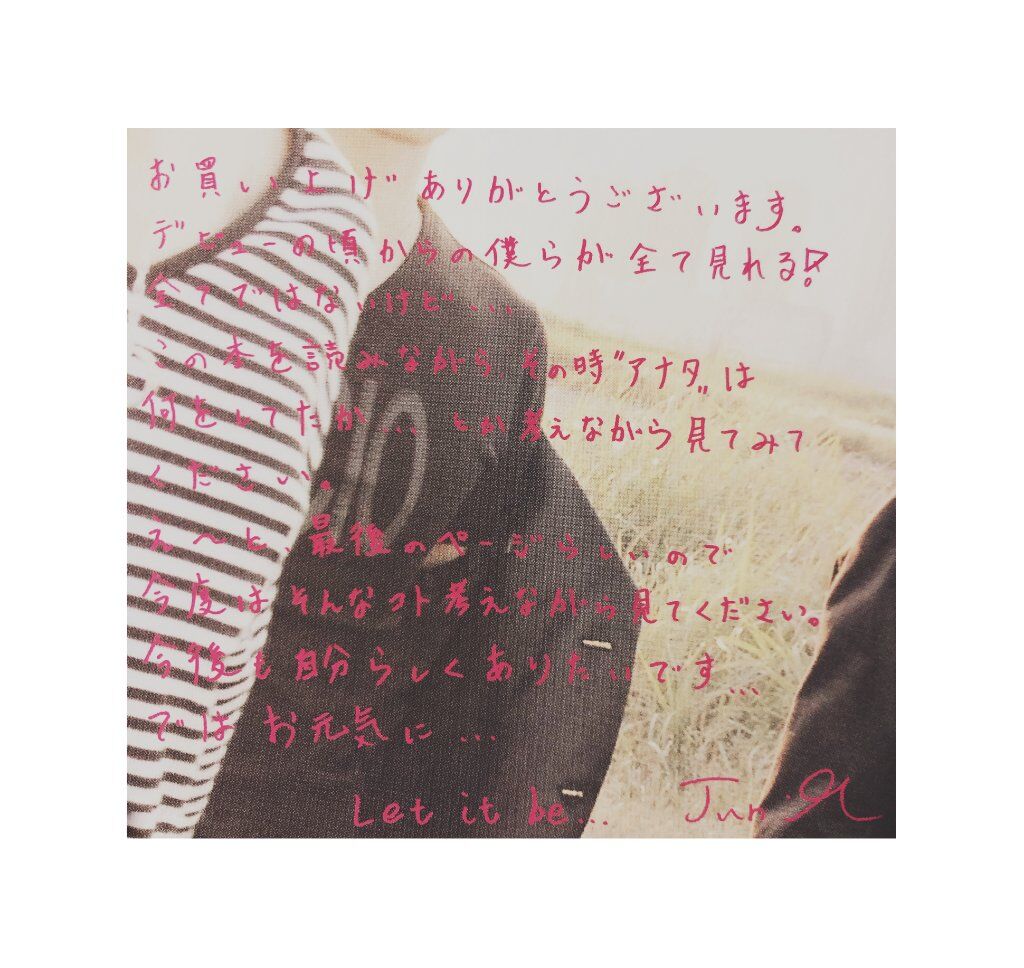 お買い上げありがとうございます。
デビューの頃からの僕らが全て見れる!?
全てではないけど...
この本を読みながら、その時"アナタ"は
何をしてたか... とか考えながら見てみて
ください。
え〜と、最後のページらしいので
今度はそんなコト考えながら見てください。
今後も自分らしくありたいです...
では お元気に...
Let it be... Jun.